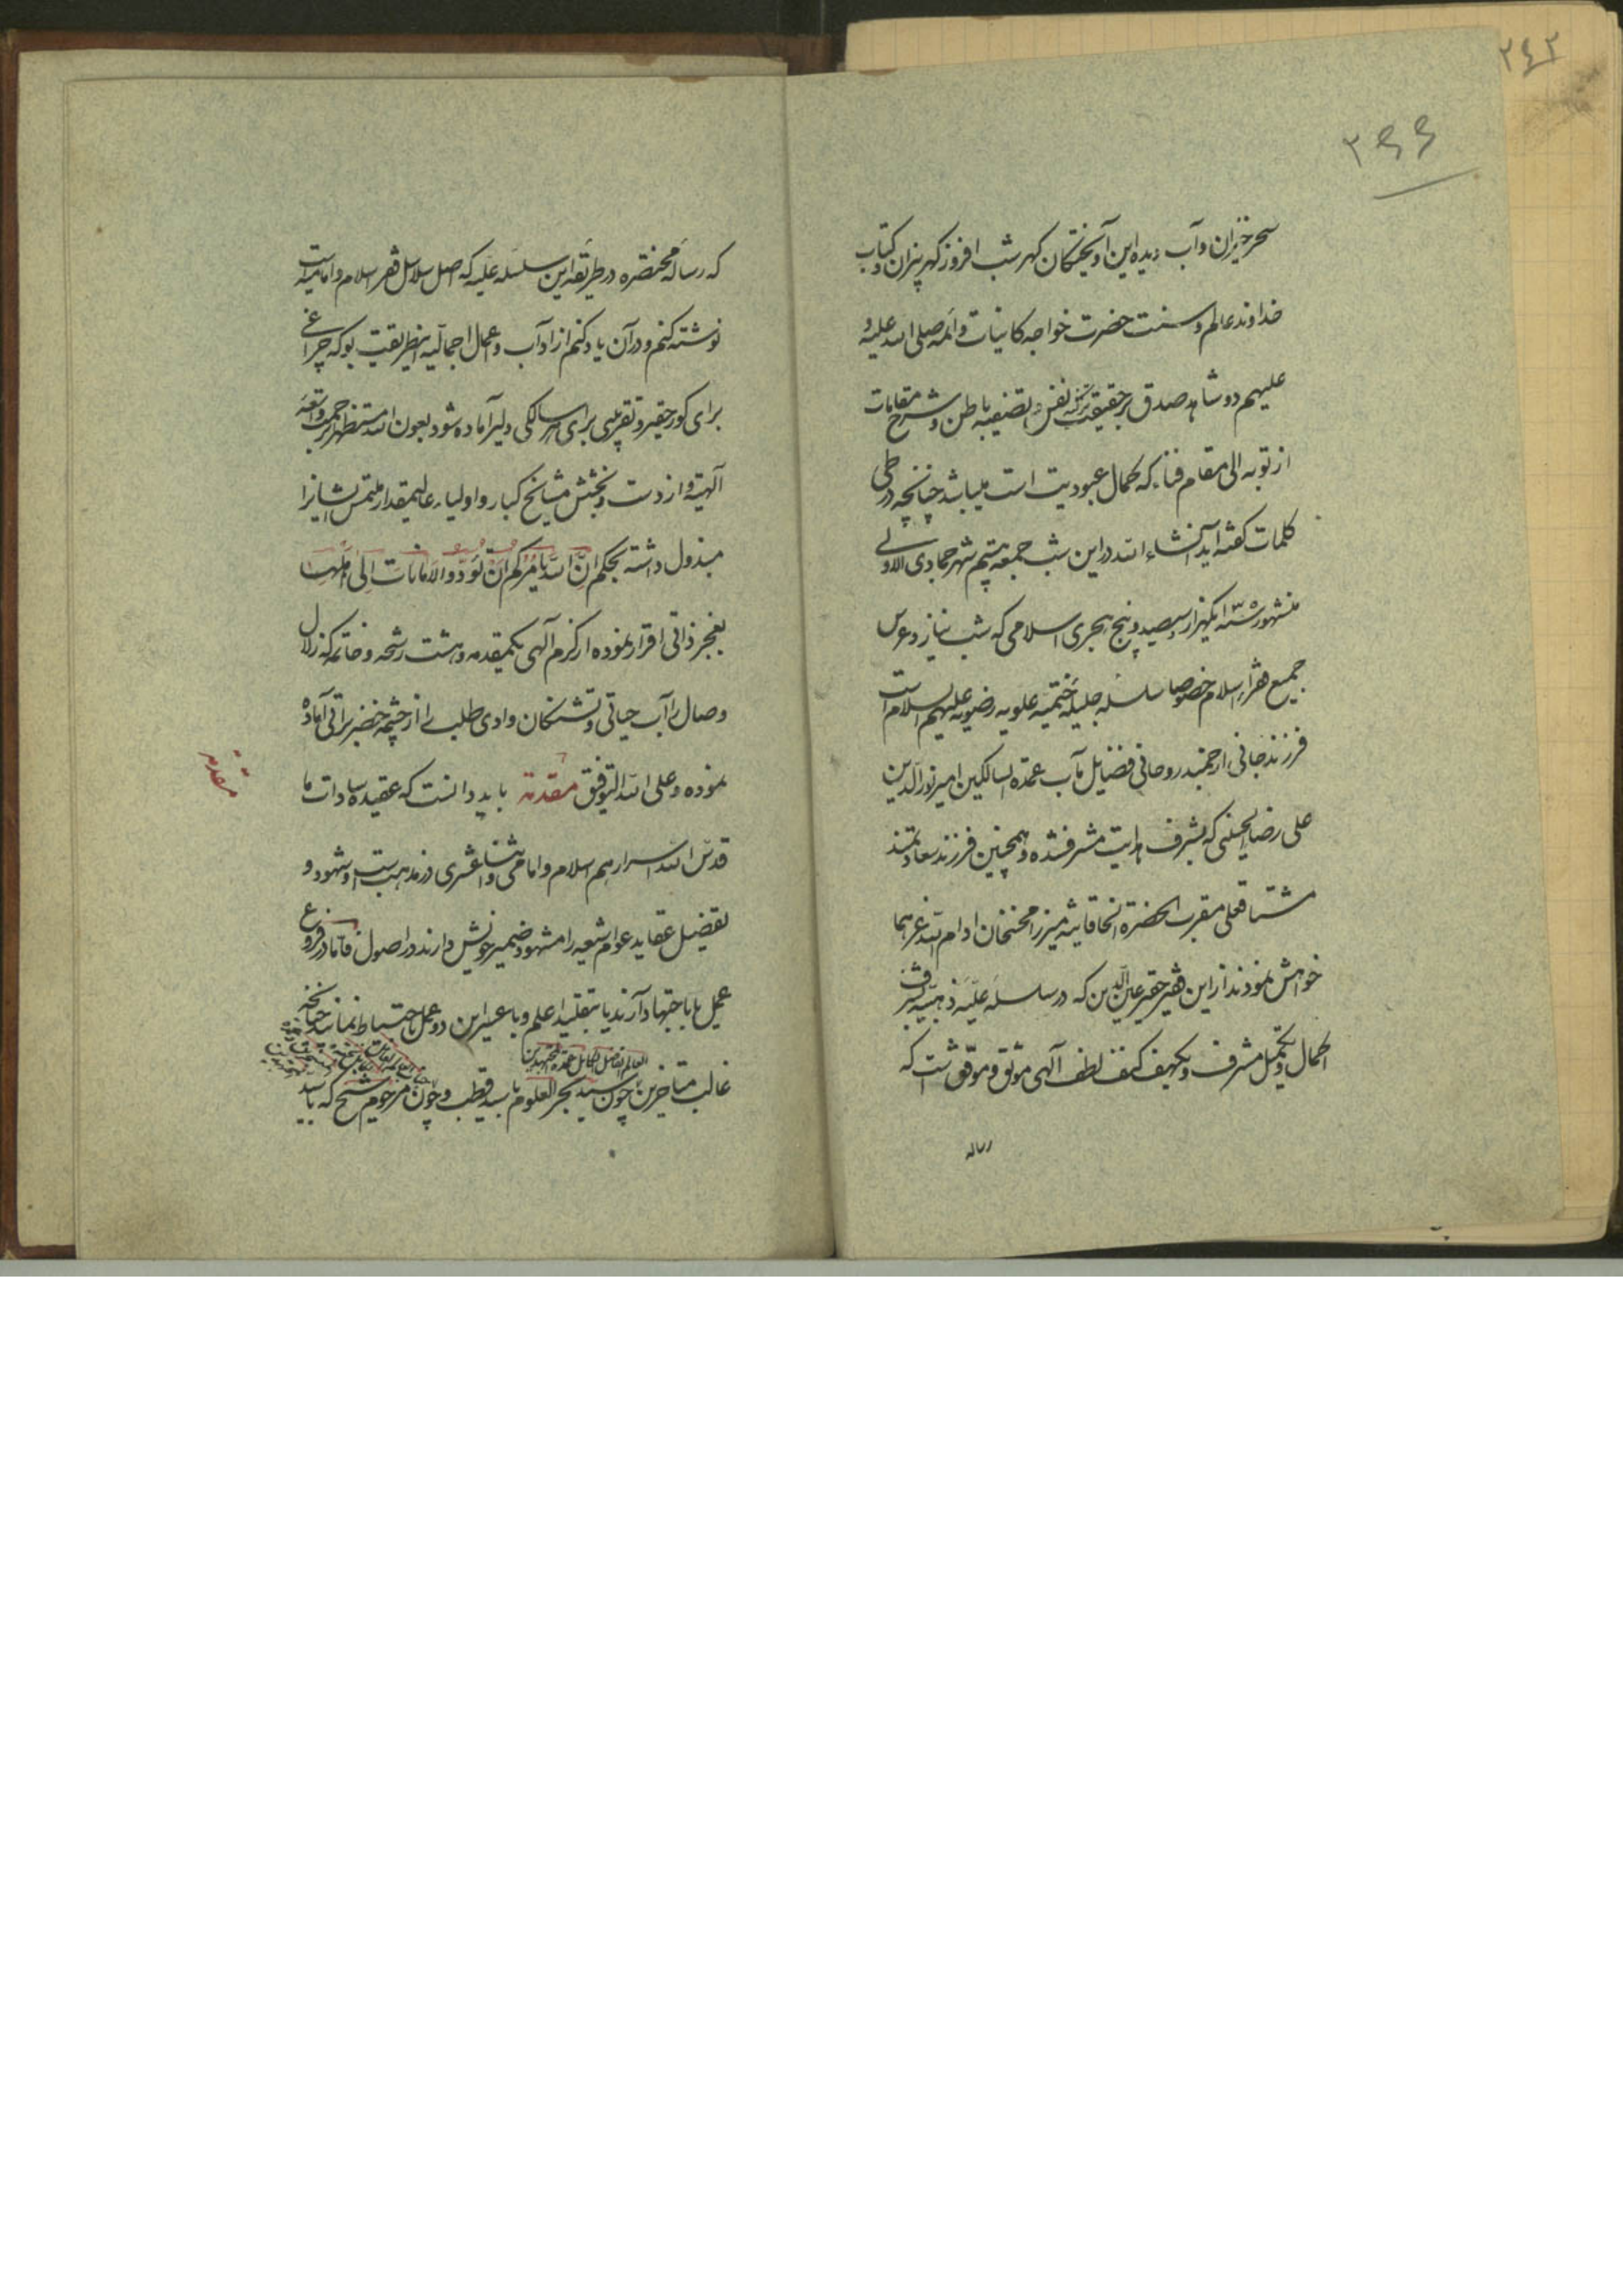 ۲۴۲
۲۶۶
سحرخیزان و آب دیده این آویختگان گهر شب افروز گهریزان کتاب
خداوند عالم و سنت حضرت خواجه کاینات و ائمه صلی الله علیه و
علیهم دو شاهد صدق بر حقیقت تزکیه نفس و تصفیه باطن و شرح مقامات
از توبه الی مقام فناء که کمال عبودیت است میباشد چنانچه در طی
کلمات گفته آید انشاء الله در این شب جمعه هشتم شهر جمادی الاولی
من شهور سنه یکهزار و سیصد و پنج هجری اسلامی که شب نیاز و عرس
جمیع فقراء اسلام خصوصا سلسله جلیله ختمیه علویه رضویه علیهم السلام است
فرزند جانی ارجمند روحانی فضایل مآب عمدة السالکین امیر نورالدین
علی رضا الحسینی که بشرف هدایت مشرف شده و همچنین فرزند سعادتمند
مشتاقعلی مقرب الحضرة الخاقانیه میرزا محسنخان ادام الله عزهما
خواهش نمودند از این فقیر حقیر عین الدین که در سلسله علیه ذهبیه بشرف
اکمال و تکمیل مشرف و بکهف کنف لطف آلهی موثق و موفق است که
رساله
که رساله مختصره در طریقه این سلسله علیه که اصل سلاسل فقر اسلام و امامیه است
نوشته کنم و در آن یاد کنم از آداب و اعمال اجمالیه این طریقت بو که چراغی
برای کور حقیر و تقریبی برای هر سالکی دلیر آماده شود بعون الله مستظهر برحمت واسعه
آلهیه و از دست و بخشش مشایخ کبار و اولیاء عالیمقدار ملتمس ایشانرا
مبذول داشته بحکم انّ الله یأمرکم ان تؤدّوا الامانات الی اهلها
بعجز ذاتی اقرار نموده از کرم آلهی بکمقدمه و هشت رشحه و خاتمه که زلال
وصال را آب حیاتی و تشنگان وادی طلب را از چشمه خضر براتی آماده
نموده و علی الله التوفیق مقدمة باید دانست که عقیده سادات ما
مقدمة
قدّس الله اسرارهم اسلام و امامی و اثنا عشری در مذهب است و شهود و
تفضیل عقاید عوام شیعه را مشهود ضمیر خویش دارند در اصول فامّا در فروع
عمل یا باجتهاد آرند یا بتقلید اعلم و یا بغیر این دو عمل باحتیاط نمایند چنانچه
العالم الفاضل الکامل عمدة المجتهدین
غالب متاخرین چون سید بحر العلوم با سید قطب و چون مرحوم شیخ که با سید